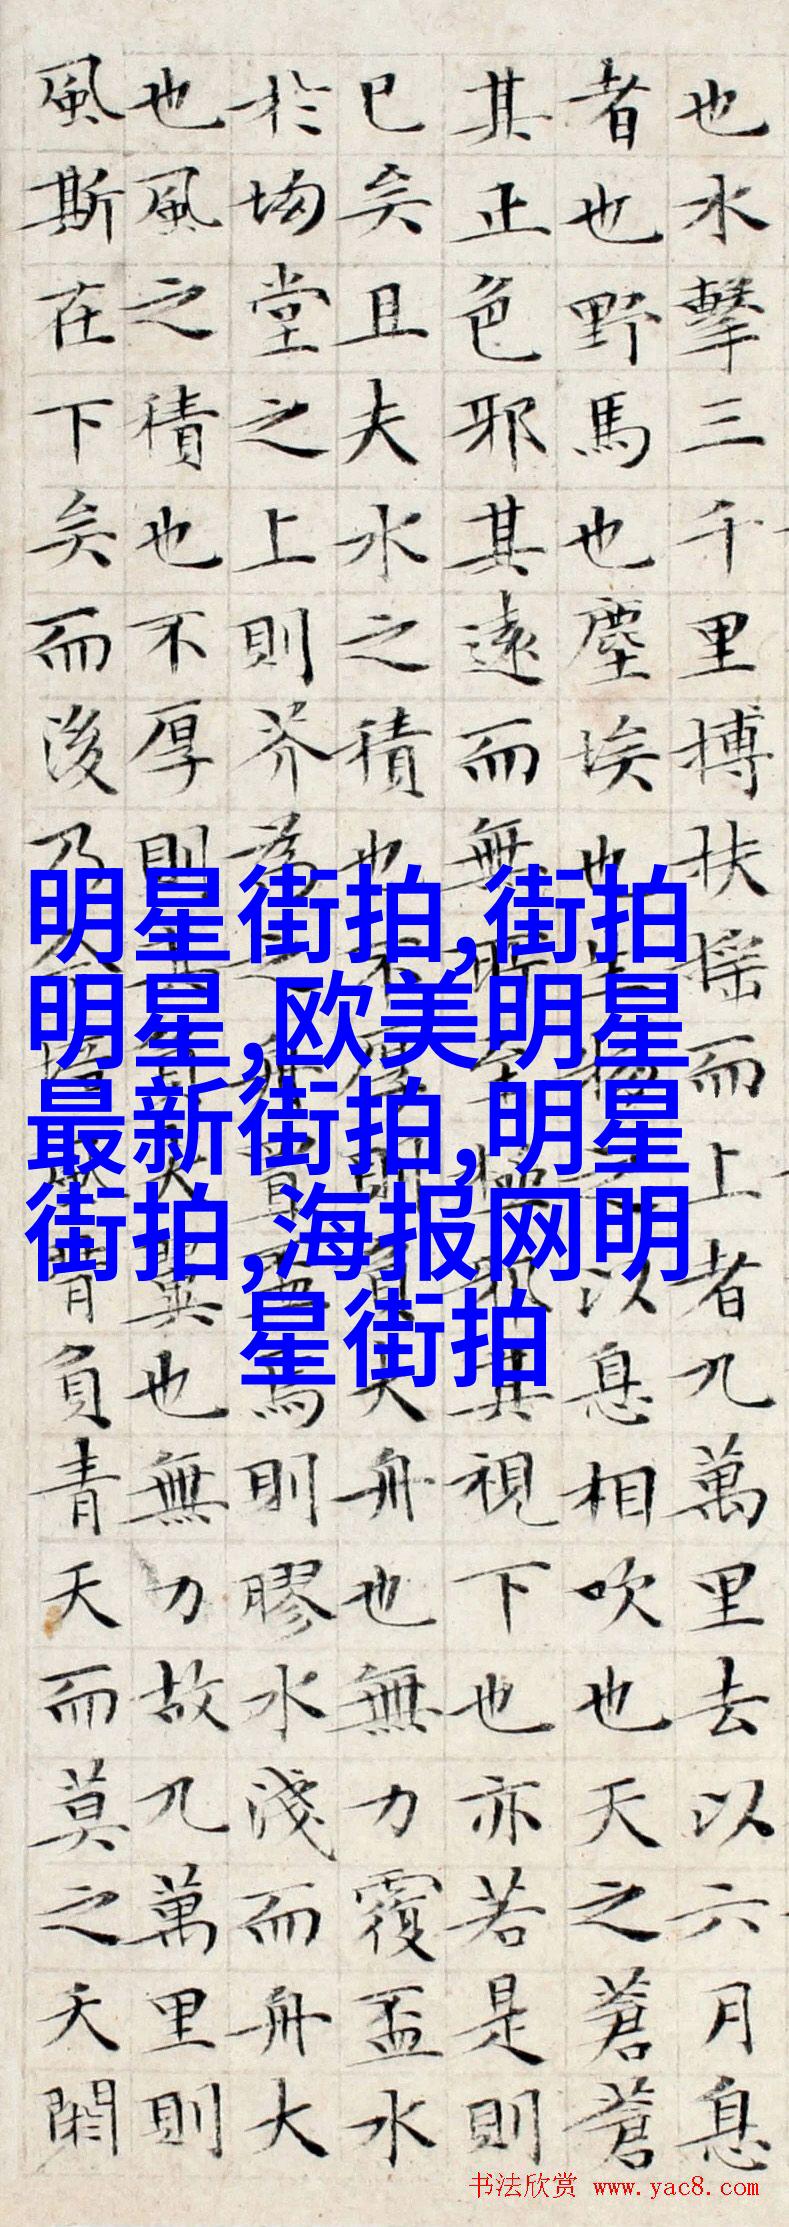 也水擊三千里搏扶摇而上者九萬里去以六月息
者也野馬也塵埃也生物之以息相吹也天之蒼蒼
其正色邪其遠而無所至極邪其視下也亦若是則
已矣且夫水之積也不厚則負大舟也無力覆盃水
於坳堂之上則芥為之舟置盃焉則膠水淺而舟大
也風之積也不厚則其負大翼也無力故九萬里則
風斯在下矣而後乃今培風背負青天而莫之夭閼
明星街拍,街拍
明星,欧美明星
最新街拍,明星
街拍,海报网明
星街拍
书法欣赏 www.yac8.com